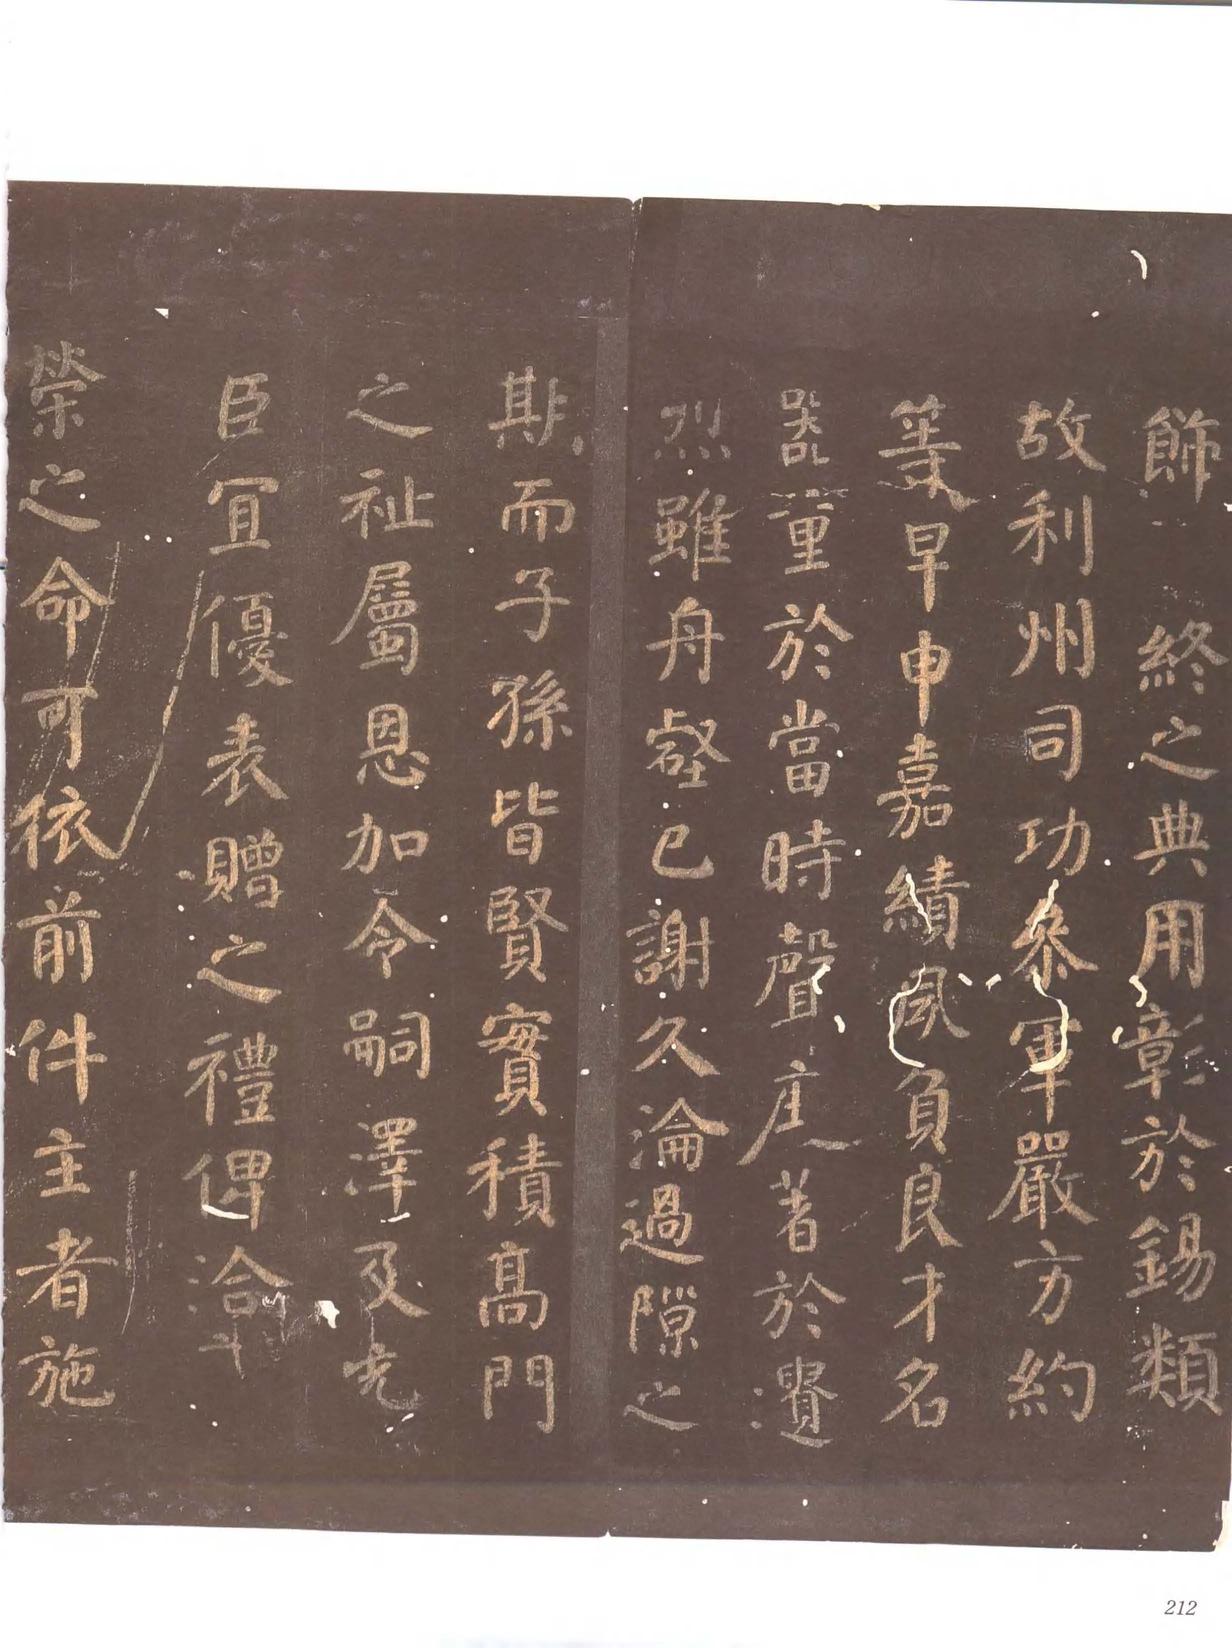 飾終之典用彰於錫類
故利州司功參軍嚴方約
等早申嘉績夙負良才名
器重於當時聲㡳著於遺
烈雖舟壑已謝久淪過隙之
期而子孫皆賢實積高門
之祉屬恩加令嗣澤及先
臣宜優表贈之禮俾洽
榮之命可依前件主者施
212